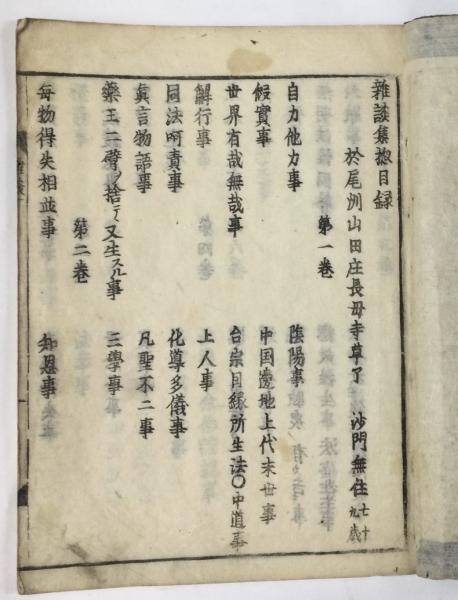 雜談集惣目録
於尾州山田庄長母寺草了 沙門無住七十九歳
第一巻
自力他力事 陰陽事
假實事 中国邊地上代末世事
世界有哉無哉事 台宗因縁所生法○中道事
解行事 上人事
同法呵責事 化導多儀事
眞言物語事 凡聖不二事
藥王二臂ノ捨テヽ又生スル事 三學事
第二巻
毎物得失相並事 知恩事